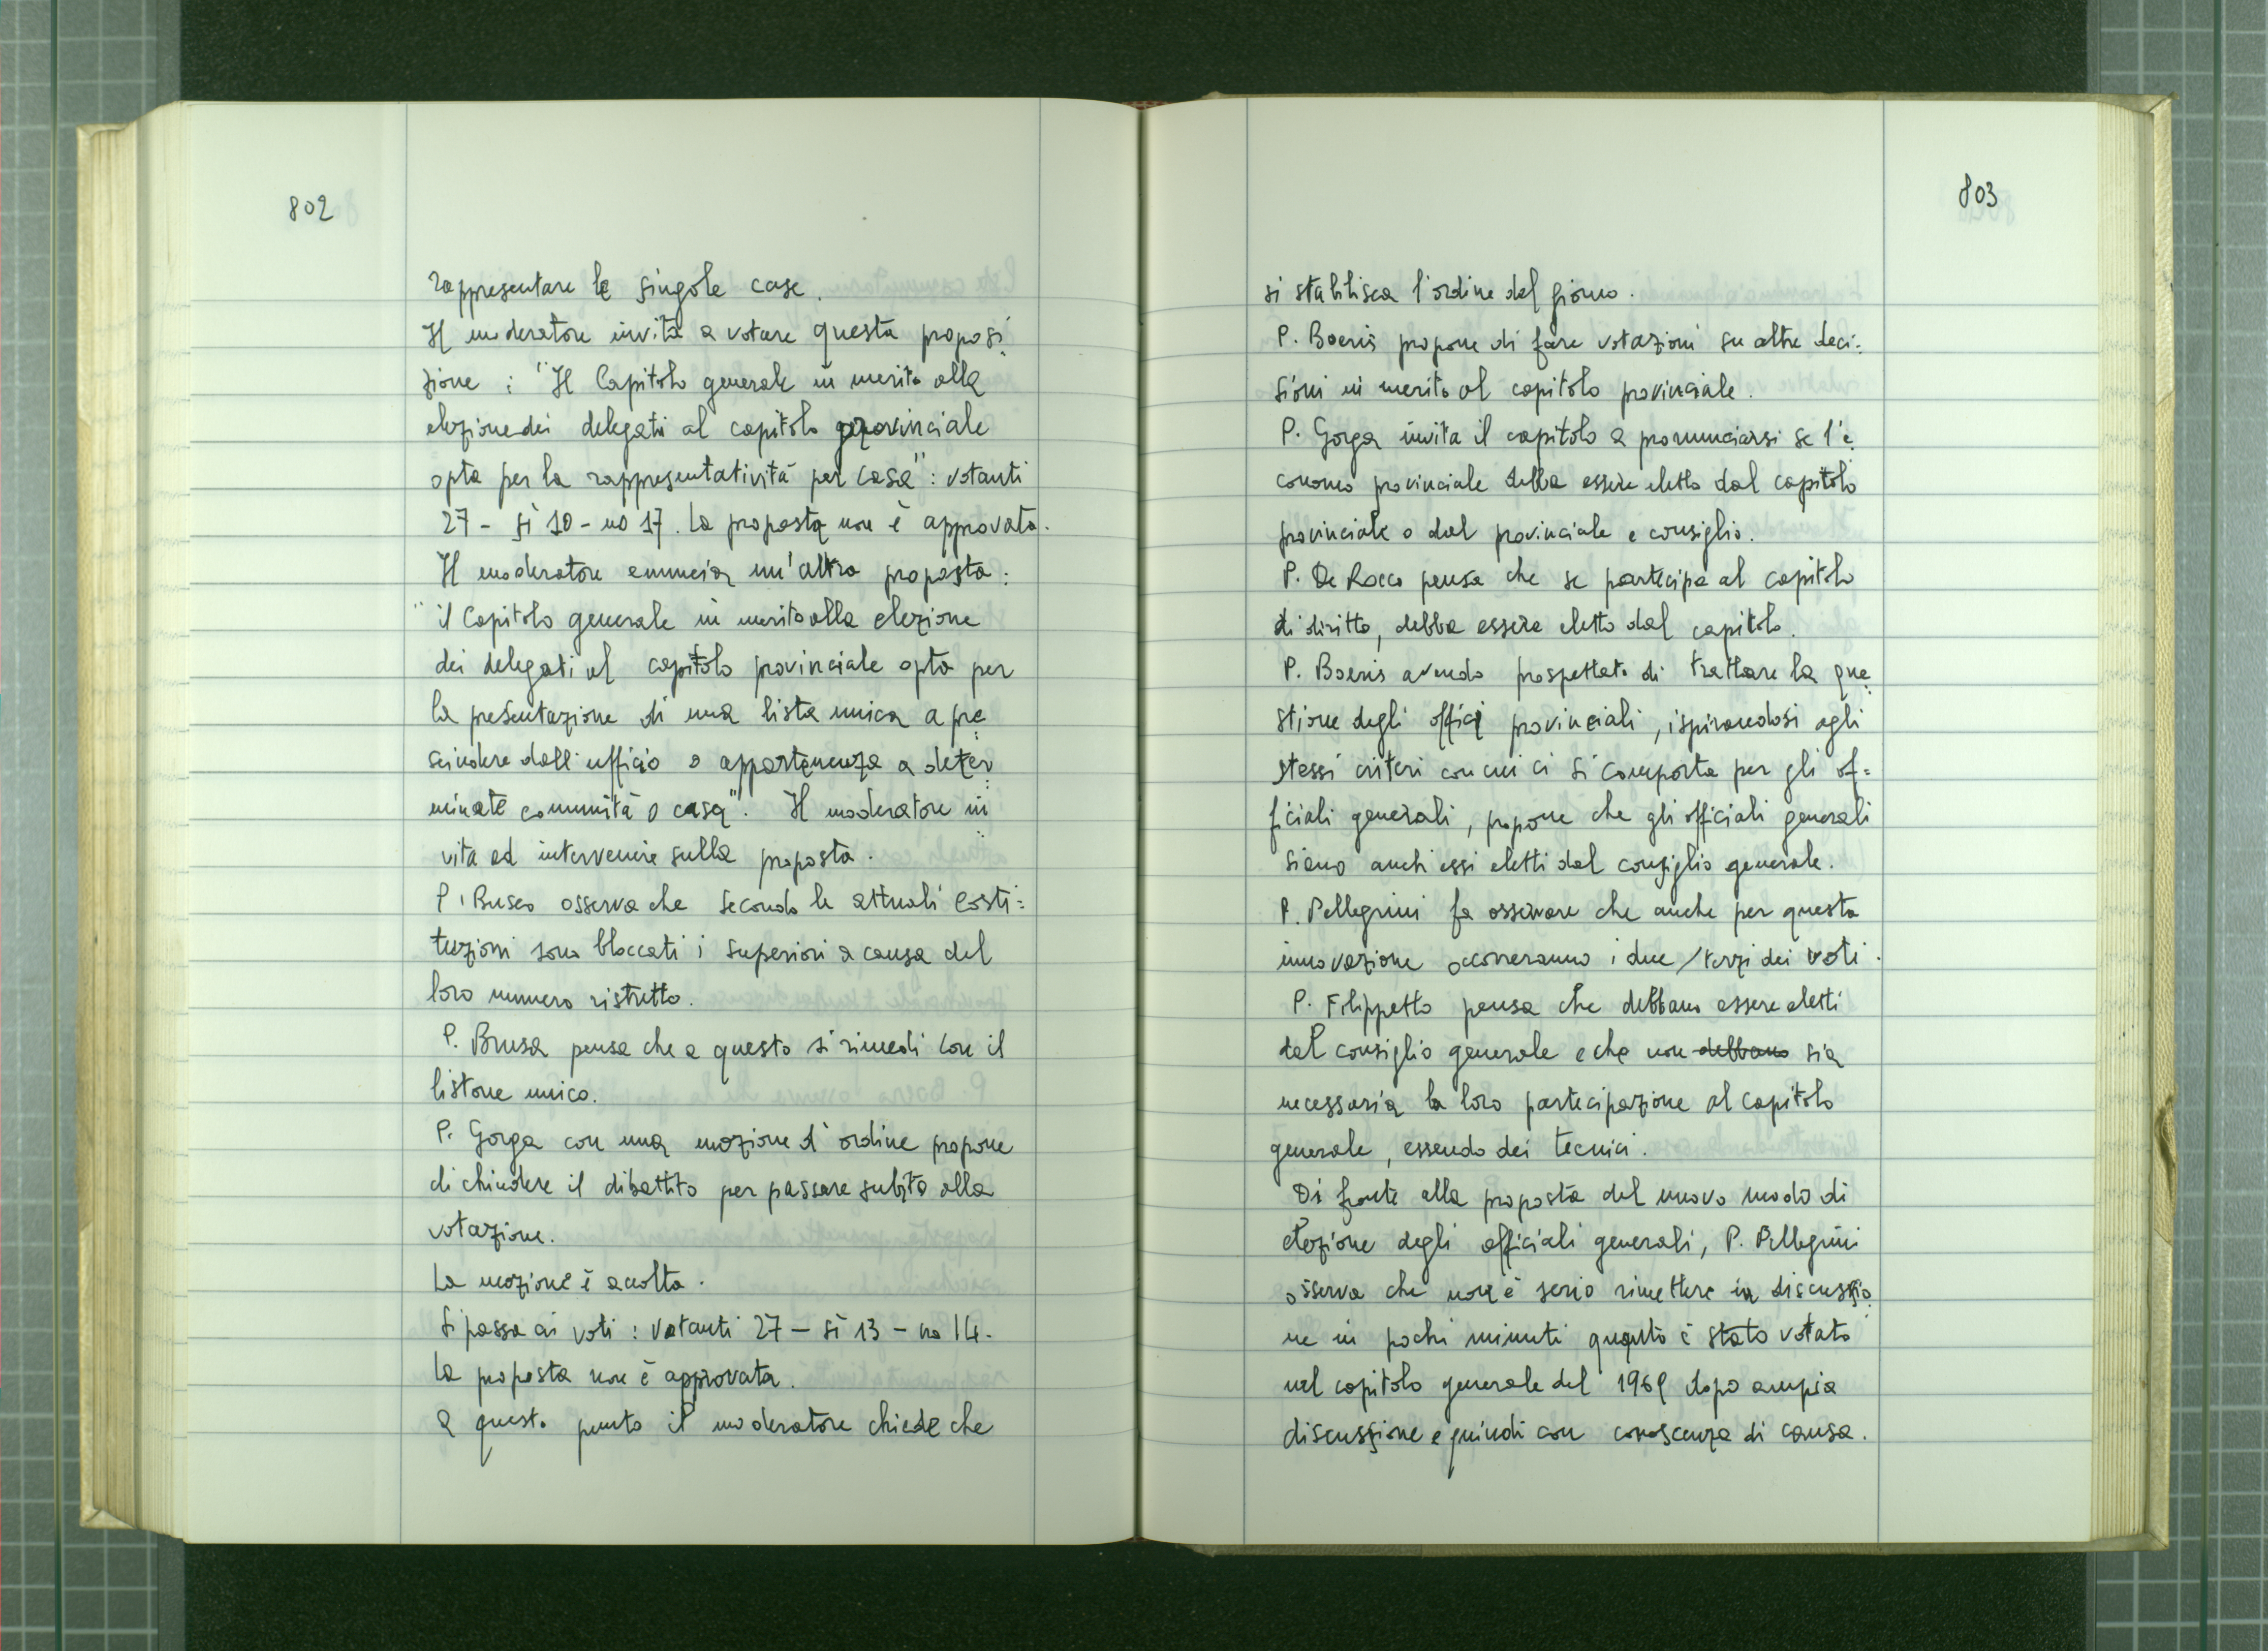 802
rappresentare le singole case.
Il moderatore invita a votare questa proposi
zione : "Il Capitolo generale in merito alla
elezione dei delegati al capitolo provinciale
opta per la rappresentatività per casa": votanti
27 - sì 10 - no 17. La proposta non è approvata.
Il moderatore enuncia un'altra proposta:
"il Capitolo generale in merito alla elezione
dei delegati al capitolo provinciale opta per
la presentazione di una lista unica a pre
scindere dall'ufficio o appartenenza a deter
minate comunità o casa". Il moderatore in
vita ad intervenire sulla proposta.
P. Busco osserva che secondo le attuali costi=
tuzioni sono bloccati i superiori a causa del
loro numero ristretto.
P. Brusa pensa che a questo si rimedi con il
listone unico.
P. Gorga con una mozione d'ordine propone
di chiudere il dibattito per passare subito alla
votazione.
La mozione è accolta.
Si passa ai voti : votanti 27 - sì 13 - no 14.
La proposta non è approvata.
A questo punto il moderatore chiede che
803
si stabilisca l'ordine del giorno.
P. Boeris propone di fare votazioni su altre deci=
sioni in merito al capitolo provinciale.
P. Gorga invita il capitolo a pronunciarsi se l'e
conomo provinciale debba essere eletto dal capitolo
provinciale o dal provinciale e consiglio.
P. De Rocco pensa che se partecipa al capitolo
di diritto, debba essere eletto dal capitolo.
P. Boeris avendo prospettato di trattare la que
stione degli offici provinciali, ispirandosi agli
stessi criteri con cui ci si comporta per gli of=
ficiali generali, propone che gli officiali generali
siano anch'essi eletti dal consiglio generale.
P. Pellegrini fa osservare che anche per questa
innovazione occorreranno i due/terzi dei voti.
P. Filippetto pensa che debbano essere eletti
dal consiglio generale e che non debbano sia
necessaria la loro partecipazione al capitolo
generale, essendo dei tecnici.
Di fronte alla proposta del nuovo modo di
elezione degli officiali generali, P. Pellegrini
osserva che non è serio rimettere in discussio
ne in pochi minuti quanto è stato votato
nel capitolo generale del 1969 dopo ampia
discussione e quindi con conoscenza di causa.